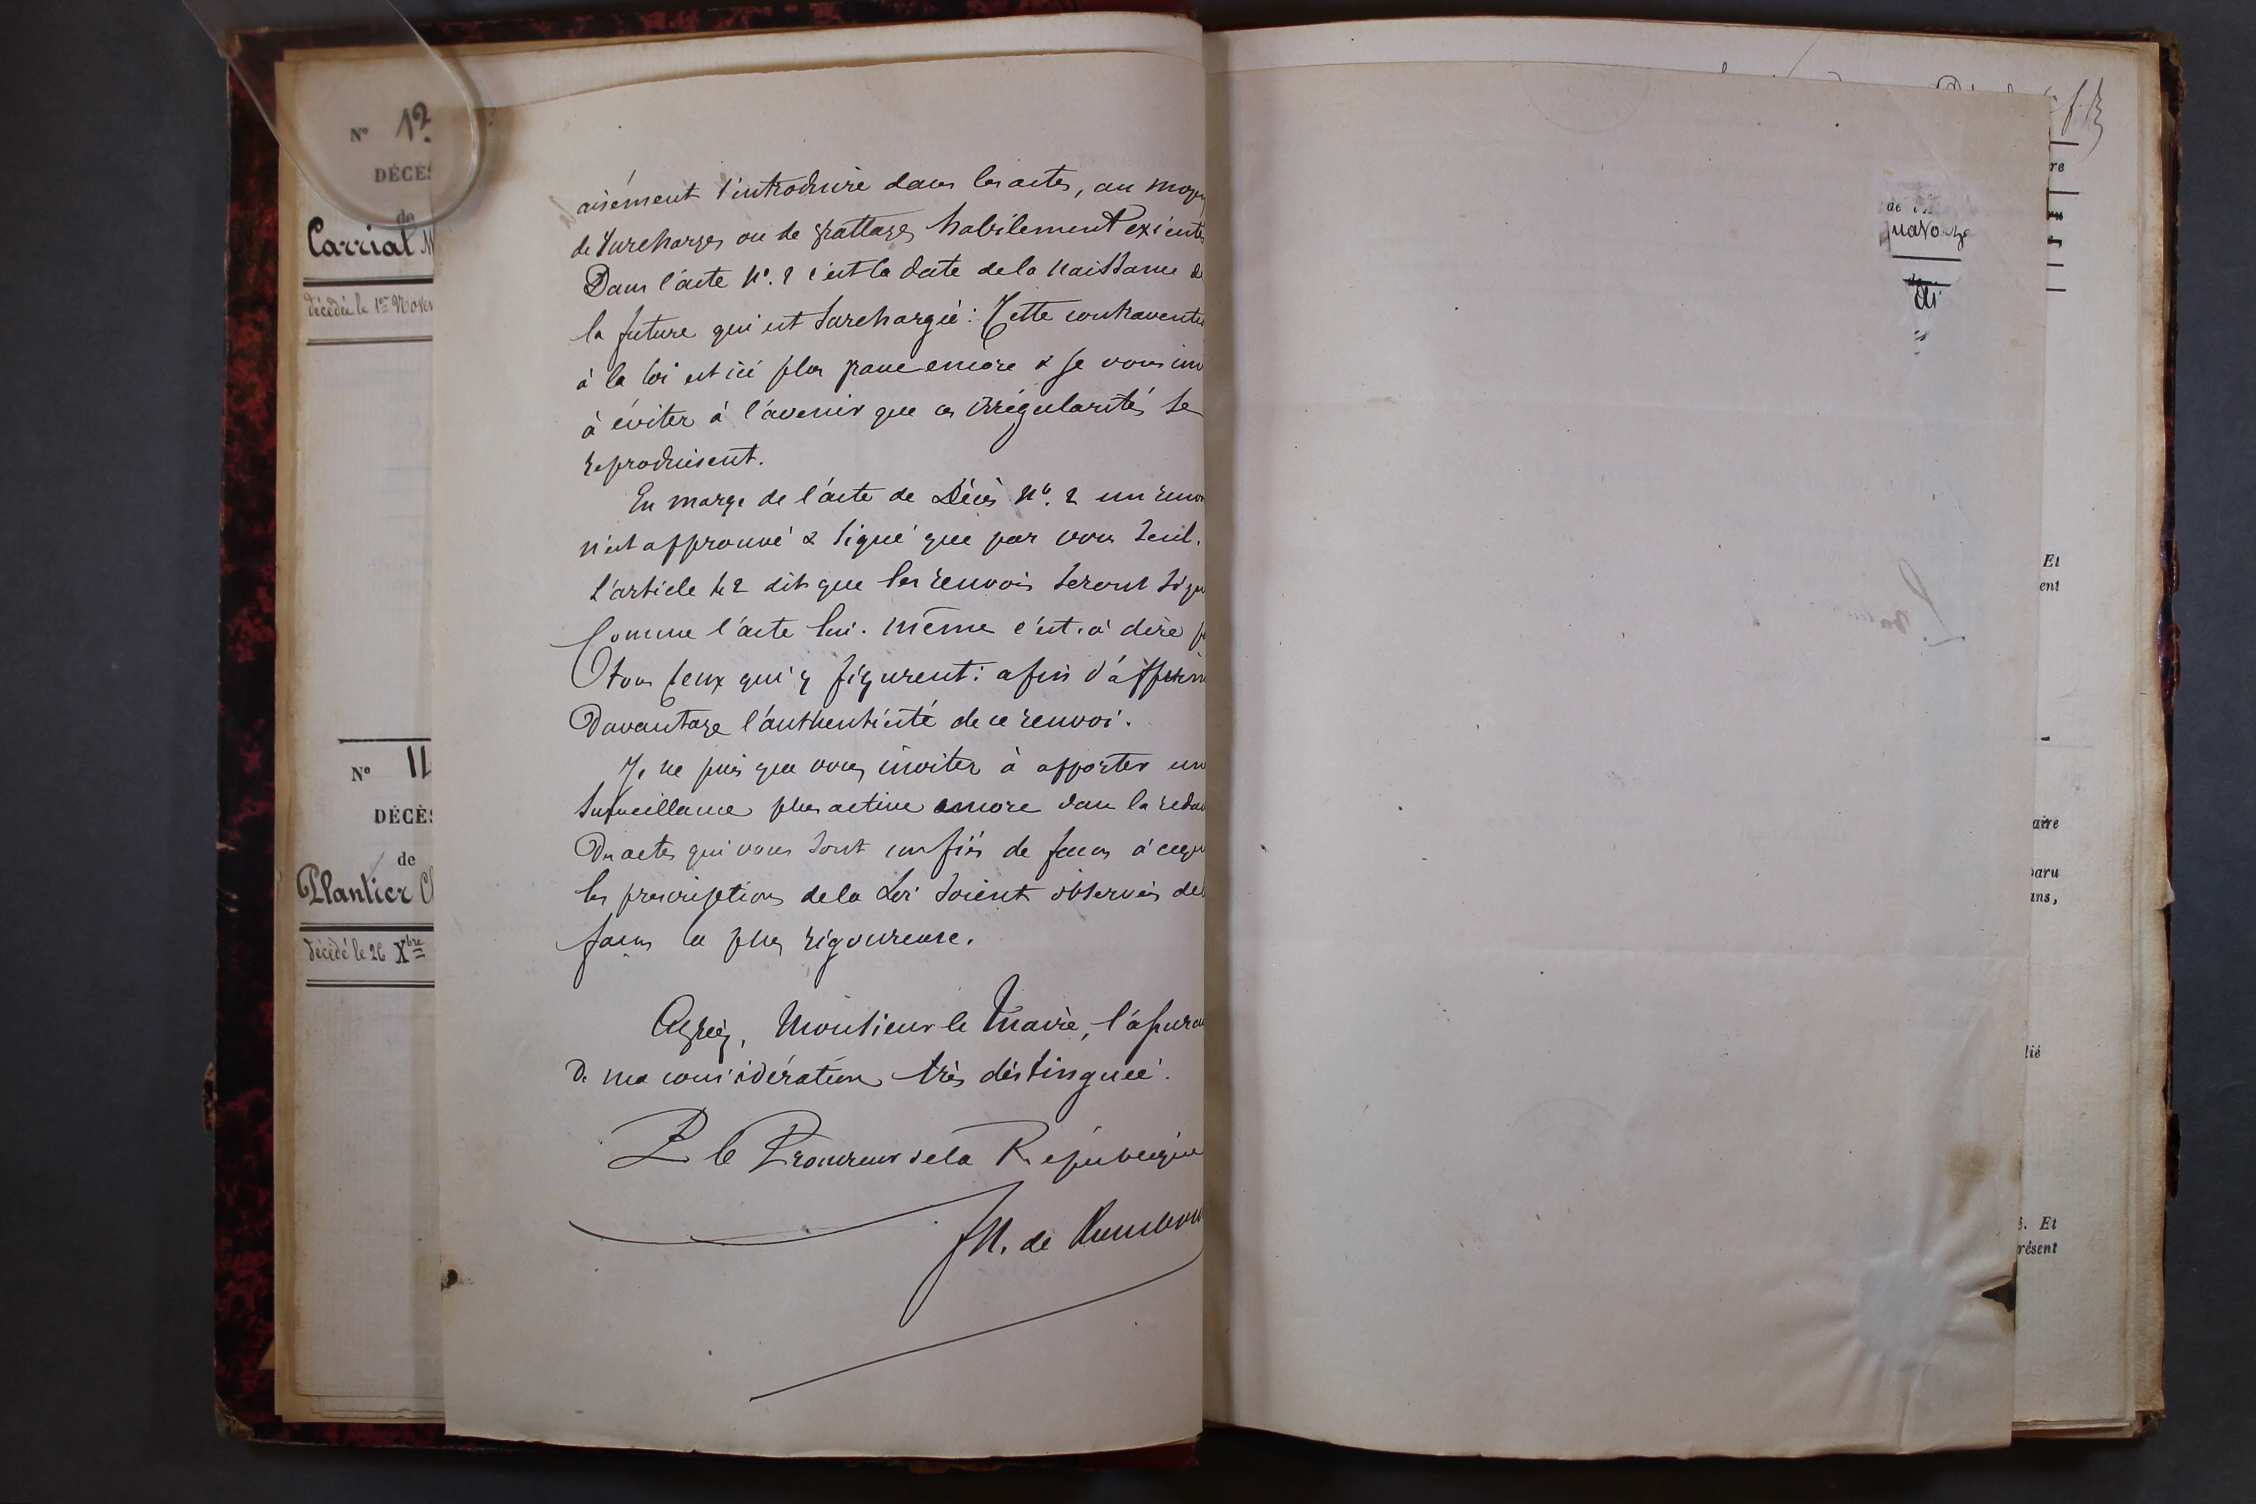 N° 12
DÉCÈS
de
Carrial M
décédée le 1er Nov
N° 11
DÉCÈS
de
Plantier Cl
décédé le 26 Xbre
aisément s'introduire dans les actes, au moyen
de surcharges ou de grattages habilement exécutés
Dans l'acte N°. 2 c'est la date de la naissance de
la future qui est surchargée : Cette contravention
à la loi est ici plus grave encore & je vous inv
à éviter à l'avenir que ces irrégularités se
reproduisent.
En marge de l'acte de Décès N°. 2 un renvoi
n'est approuvé & signé que par vous seul.
L'article 42 dit que les renvois seront signés
Comme l'acte lui-même c'est-à-dire p
tous ceux qui y figurent : afin d'affirm
Davantage l'authenticité de ce renvoi.
Je ne puis que vous inviter à apporter une
surveillance plus active encore dans la rédac
Des actes qui vous sont confiés de façon à ce que
les prescriptions de la Loi soient observées de l
façon la plus rigoureuse.
Agréez, Monsieur le Maire, l'assuran
De ma considération très distinguée.
P le Procureur de la République
re
Et
ent
aire
paru
ans,
lié
s. Et
résent